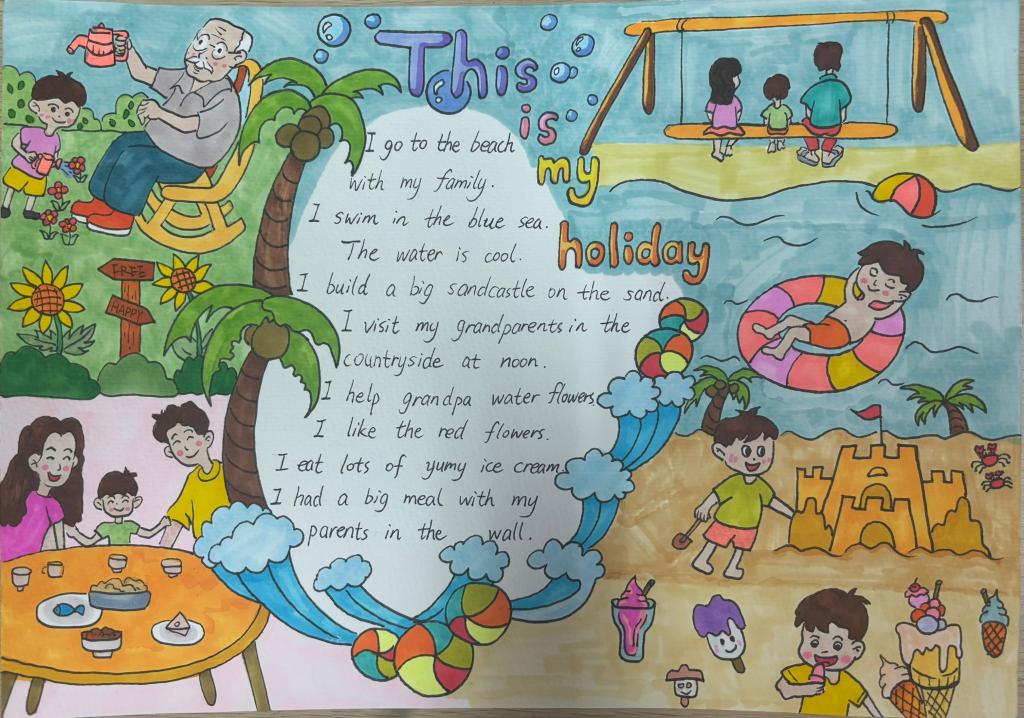 This
is
my
holiday
I go to the beach
with my family.
I swim in the blue sea.
The water is cool.
I build a big sandcastle on the sand.
I visit my grandparents in the
countryside at noon.
I help grandpa water flowers.
I like the red flowers.
I eat lots of yumy ice cream.
I had a big meal with my
parents in the wall.
FREE
HAPPY